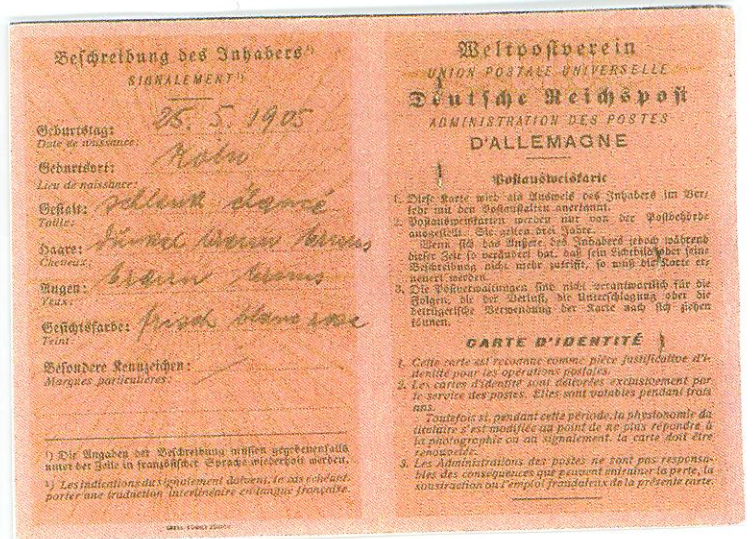 Beschreibung des Inhabers¹⁾
SIGNALEMENT¹⁾
Geburtstag: 25. 5. 1905
Date de naissance:
Geburtsort: Köln
Lieu de naissance:
Gestalt: schlank élancé
Taille:
Haare: dunkelbraun bruns
Cheveux:
Augen: braun bruns
Yeux:
Gesichtsfarbe: frisch blanc rose
Teint:
Besondere Kennzeichen:
Marques particulières:
¹⁾ Die Angaben der Beschreibung müssen gegebenenfalls
unter der Zeile in französischer Sprache wiederholt werden.
¹⁾ Les indications du signalement doivent, le cas échéant,
porter une traduction interlinéaire en langue française.
Weltpostverein
UNION POSTALE UNIVERSELLE
Deutsche Reichspost
ADMINISTRATION DES POSTES
D'ALLEMAGNE
Postausweiskarte
1. Diese Karte wird als Ausweis des Inhabers im Ver-
kehr mit den Postanstalten anerkannt.
2. Postausweiskarten werden nur von der Postbehörde
ausgestellt. Sie gelten drei Jahre.
Wenn sich das Äußere des Inhabers jedoch während
dieser Zeit so verändert hat, daß sein Lichtbild oder seine
Beschreibung nicht mehr zutrifft, so muß die Karte er-
neuert werden.
3. Die Postverwaltungen sind nicht verantwortlich für die
Folgen, die der Verlust, die Unterschlagung oder die
betrügerische Verwendung der Karte nach sich ziehen
können.
CARTE D'IDENTITÉ
1. Cette carte est reconnue comme pièce justificative d'i-
dentité pour les opérations postales.
2. Les cartes d'identité sont délivrées exclusivement par
le service des postes. Elles sont valables pendant trois
ans.
Toutefois si, pendant cette période, la physionomie du
titulaire s'est modifiée au point de ne plus répondre à
la photographie ou au signalement, la carte doit être
renouvelée.
3. Les Administrations des postes ne sont pas responsa-
bles des conséquences que peuvent entraîner la perte, la
soustraction ou l'emploi frauduleux de la présente carte.